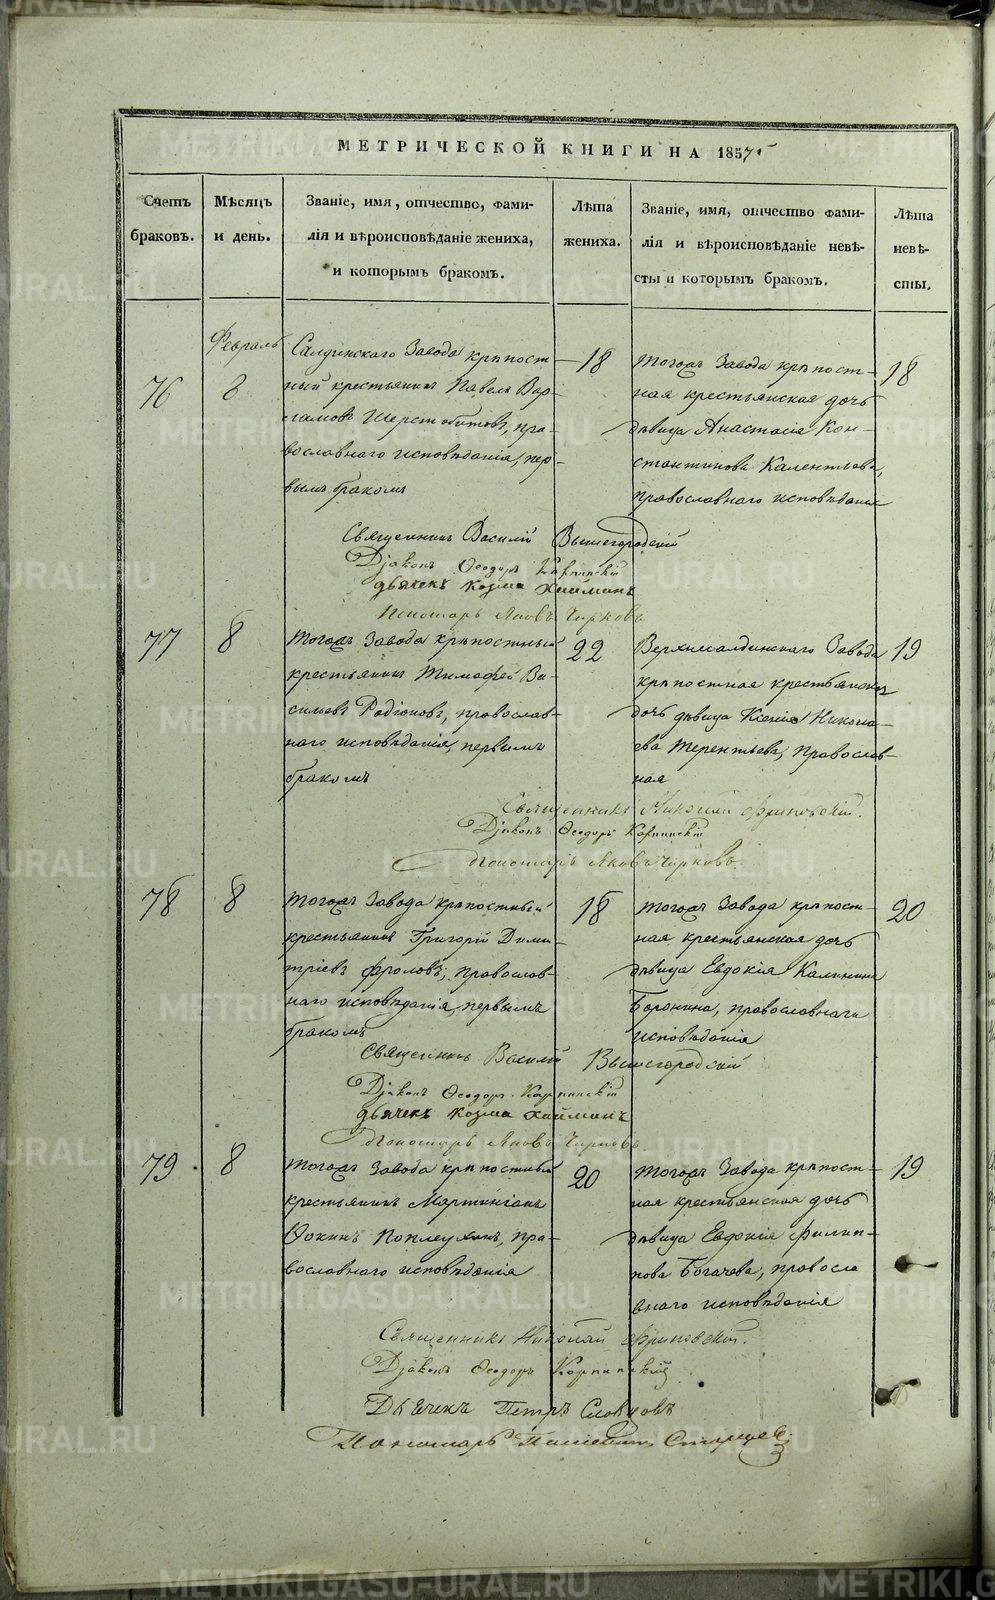 МЕТРИЧЕСКОЙ КНИГИ НА 1857 г
Счетъ браковъ.
Мѣсяцъ и день.
Званіе, имя, отчество, фами-
лія и вѣроисповѣданіе жениха,
и которымъ бракомъ.
Лѣта жениха.
Званіе, имя, отчество фами-
лія и вѣроисповѣданіе невѣ-
сты и которымъ бракомъ.
Лѣта невѣ-
сты.
Февраль
76
8
Салдинскаго Завода крѣпост
ный крестьянинъ Павелъ Вар-
ламовъ Шерстобитовъ, пра-
вославнаго исповѣданія, пер-
вымъ бракомъ
18
Тогожъ Завода крѣпост-
ная крестьянская дочь
дѣвица Анастасія Кон-
стантинова Калентьева,
православнаго исповѣданія
18
Священникъ Василій Вышегородскій
Діаконъ Ѳеодоръ Карпинскій
дьячекъ Козма Хайминъ
Пономарь Яковъ Чирковъ
77
8
Тогожъ Завода крѣпостный
крестьянинъ Тимофей Ва-
сильевъ Радіоновъ, православ-
наго исповѣданія, первымъ
бракомъ
22
Верхнесалдинскаго Завода
крѣпостная крестьянская
дочь дѣвица Ксенія Никола-
ева Терентьева, Православ-
ная
19
Священникъ Николай Флоровскій.
Діаконъ Ѳеодоръ Карпинскій
Пономарь Яковъ Чирковъ
78
8
Тогожъ Завода крѣпостный
крестьянинъ Григорій Дими-
тріевъ Фроловъ, православ-
наго исповѣданія, первымъ
бракомъ
18
Тогожъ Завода крѣпост-
ная крестьянская дочь
дѣвица Евдокія Калинина
Боронина, православнаго
исповѣданія
20
Священникъ Василій Вышегородскій
Діаконъ Ѳеодоръ Карпинскій
дьячекъ Козма Хайминъ
Пономарь Яковъ Чирковъ
79
8
Тогожъ Завода крѣпостный
крестьянинъ Мартиніанъ
Ѳокинъ Поплеухинъ, пра-
вославнаго исповѣданія
20
Тогожъ Завода крѣпост-
ная крестьянская дочь
дѣвица Евдокія Филип-
пова Богачева, правосла
внаго исповѣданія
19
Священникъ Николай Флоровскій.
Діаконъ Ѳеодоръ Карпинскій
Дьячекъ Петръ Словцовъ
Пономарь Старцев
METRIKI.GASO-URAL.RU